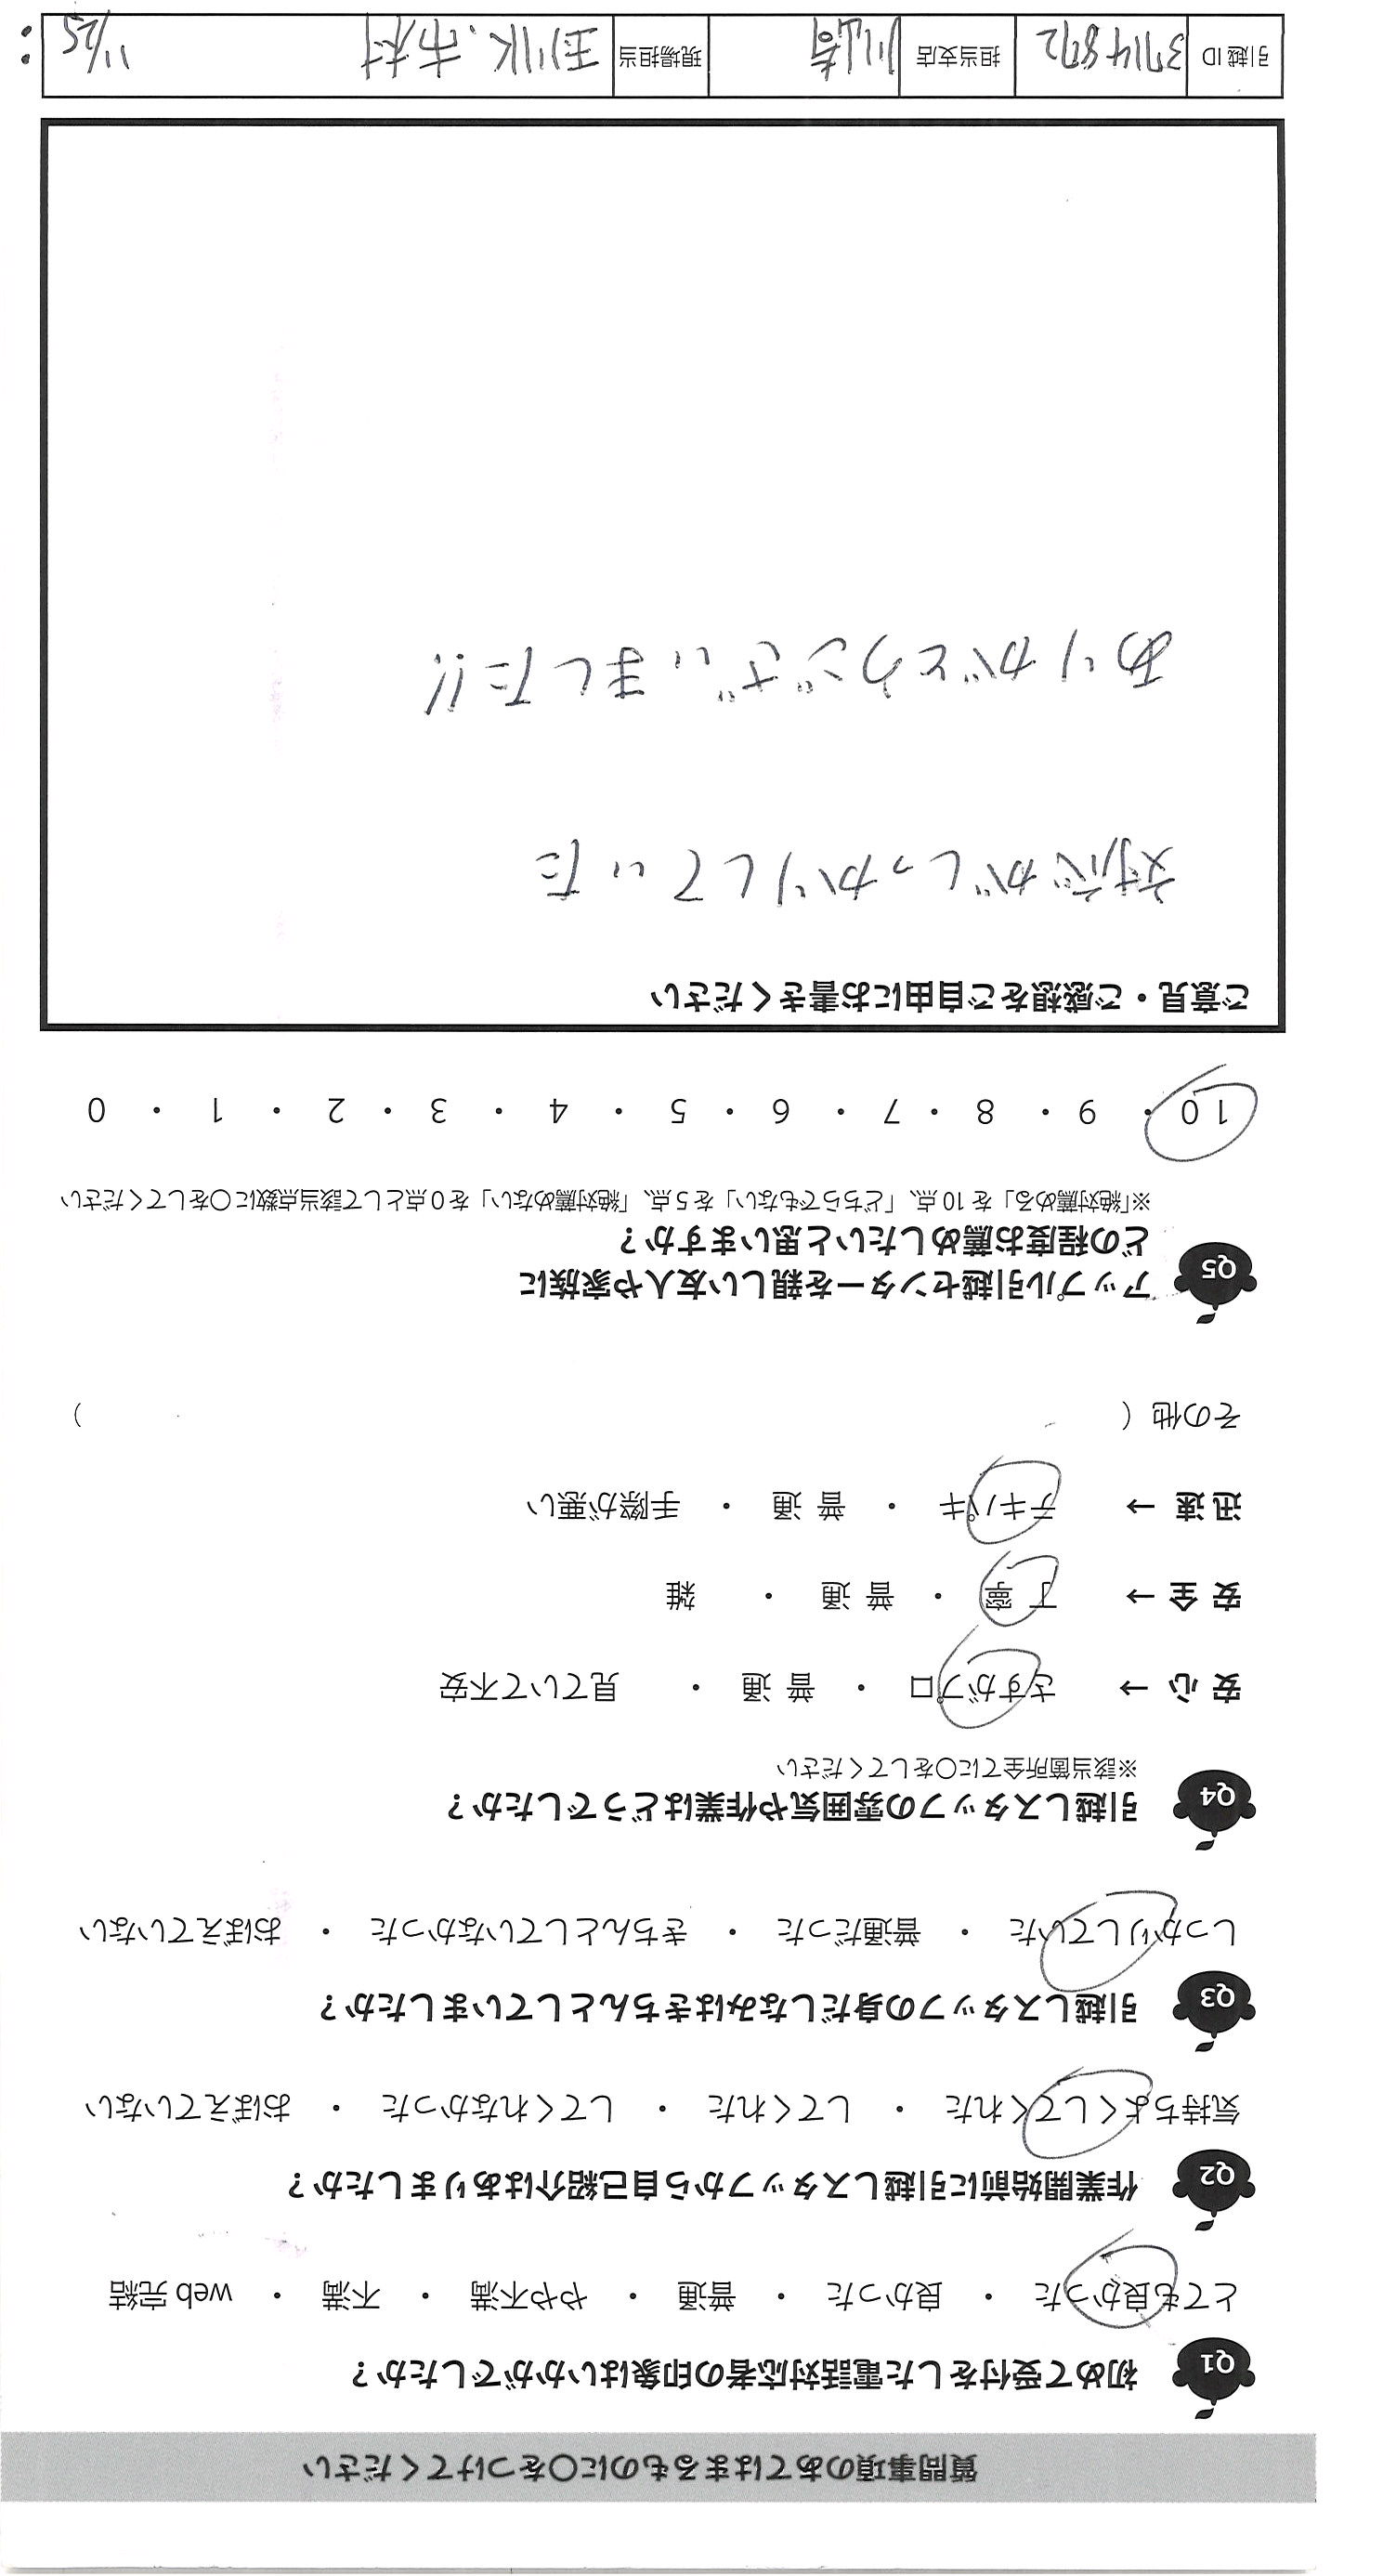 質問事項のあてはまるものに〇をつけてください
Q1 初めて受付をした電話対応者の印象はいかがでしたか？
とても良かった ・ 良かった ・ 普通 ・ やや不満 ・ 不満 ・ web 完結
Q2 作業開始前に引越しスタッフから自己紹介はありましたか？
気持ちよくしてくれた ・ してくれた ・ してくれなかった ・ おぼえていない
Q3 引越しスタッフの身だしなみはきちんとしていましたか？
しっかりしていた ・ 普通だった ・ きちんとしていなかった ・ おぼえていない
Q4 引越しスタッフの雰囲気や作業はどうでしたか？
※該当箇所全てに〇をしてください
安 心 → さすがプロ ・ 普 通 ・ 見ていて不安
安 全 → 丁 寧 ・ 普 通 ・ 雑
迅 速 → テキパキ ・ 普 通 ・ 手際が悪い
その他（ ）
Q5 アップル引越センターを親しい友人や家族に
どの程度お薦めしたいと思いますか？
※「絶対薦める」を 10 点、「どちらでもない」を 5 点、「絶対薦めない」を 0 点として該当点数に〇をしてください
10 ・ 9 ・ 8 ・ 7 ・ 6 ・ 5 ・ 4 ・ 3 ・ 2 ・ 1 ・ 0
ご意見・ご感想をご自由にお書きください
対応がしっかりしていた
ありがとうございました!!
引越 ID 3714872 担当支店 川崎 現場担当 玉川K、市村 11/25